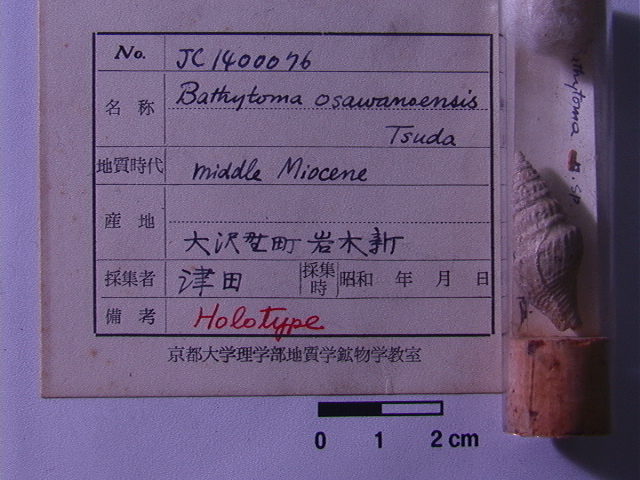 No. JC1400076
名称 Bathytoma osawanoensis
Tsuda
地質時代 middle Miocene
産地
大沢野町岩木新
採集者 津田 採集時 昭和 年 月 日
備考 Holotype
京都大学理学部地質学鉱物学教室
0 1 2 cm
sp.